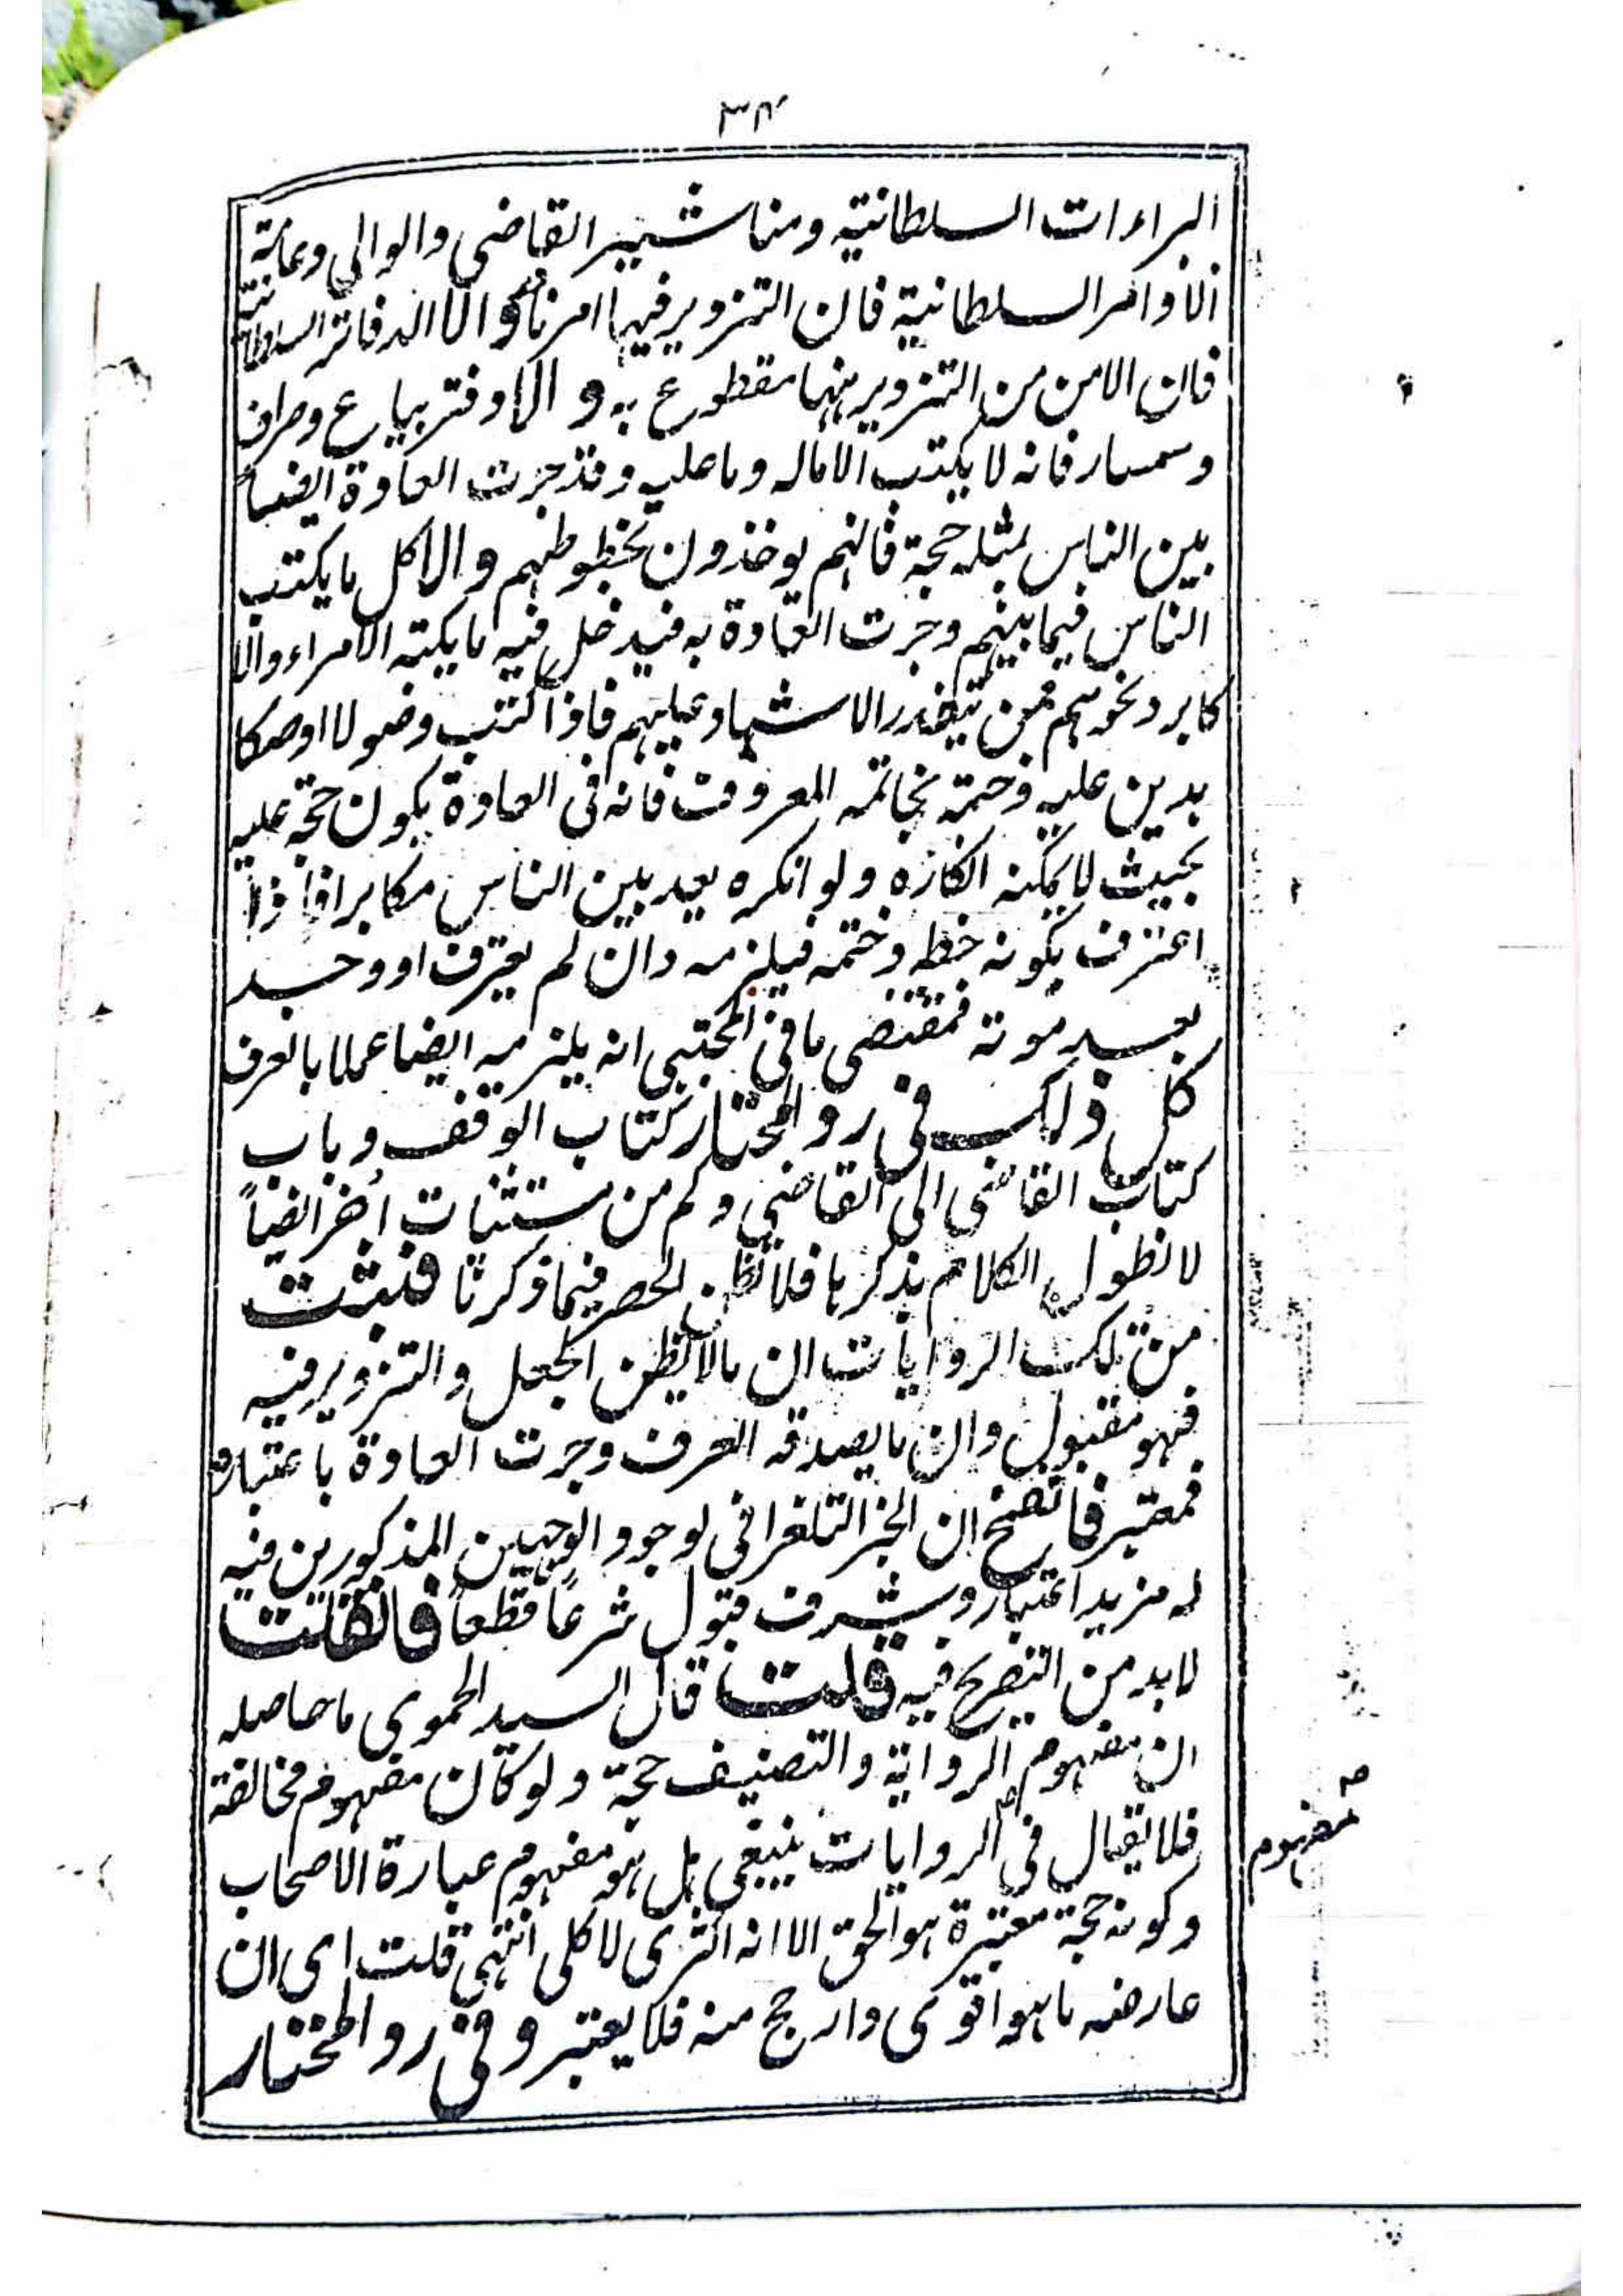 ٣٤
البراءات السلطانية ومناشير القاضى والوالى وعامة
الاوامر السلطانية فان التزوير فيها امر نادر والا الدفاتر السلطانية
فان الامن من التزوير فيها مقطوع به والا دفتر بياع وصراف
وسمسار فانه لا يكتب الا ماله وما عليه وقد جرت العادة ايضا
بين الناس بمثله حجة فانهم يوخذون بخطوطهم والا كل ما يكتب
الناس فيما بينهم وجرت العادة به فيدخل فيه ما يكتبه الامراء والا
كابر ونحوهم ممن يتعذر الاشهاد عليهم فاذا كتب وصولا اوصكا
بدين عليه وختمه بخاتمه المعروف فانه فى العادة يكون حجة عليه
بحيث لا يمكنه انكاره ولو انكره يعد بين الناس مكابرا فاذا
اعترف بكونه خطه وختمه فيلزمه وان لم يعترف او وجد
بعد موته فمقتضى ما فى المجتبى انه يلزمه ايضا عملا بالعرف
كل ذلك فى رد المحتار كتاب الوقف وباب
كتاب القاضى الى القاضى وكم من مستثنات أخر ايضاً
لا نطول الكلام بذكرها فلا تظن الحصر فيما ذكرنا فثبت
من تلك الروايات ان مالا يظن الجعل والتزوير فيه
فهو مقبول وان ما يصدقه العرف وجرت العادة باعتباره
فمعتبر فاتضح ان الخبر التلغرافى لوجود الوجهين المذكورين فيه
له مزيد اعتبار وشرف قبول شرعاً قطعاً فان قلت
لابد من التصريح فيه قلت قال السيد الحموى ما حاصله
ان مفهوم الرواية والتصنيف حجة ولو كان مفهوم مخالفة
فلا يقال فى الروايات ينبغى بل هو مفهوم عبارة الاصحاب
مفهوم
وكونه حجة معتبرة هو الحق الا انه اكثرى لا كلى انتهى قلت اى ان
عارضه ما هو اقوى وارجح منه فلا يعتبر وفى رد المختار